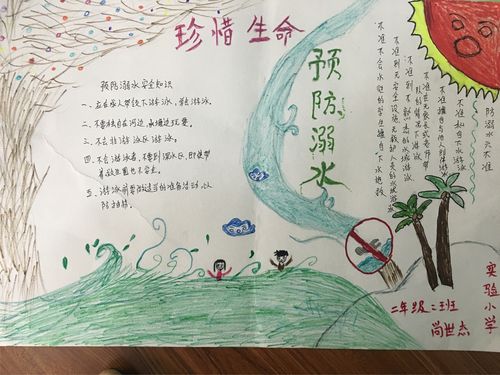 珍惜生命
预防溺水
预防溺水安全知识
一、应在成人带领下游泳，学会游泳。
二、不要独自在河边、山塘边玩耍。
三、不去非游泳区游泳。
四、不会游泳者，不要到深水区，即使带
着救生圈也不安全。
五、游泳前要做适当的准备活动，以
防抽筋。
防溺水六不准
不准私自下水游泳
不准擅自与他人结伴游泳
不准在无家长或老师带
队的情况下游泳
不准到不熟悉的水域游泳
不准到无安全设施、无救护人员的水域游泳
不准不会水性的学生擅自下水施救
实验小学
二年级二班
尚世杰